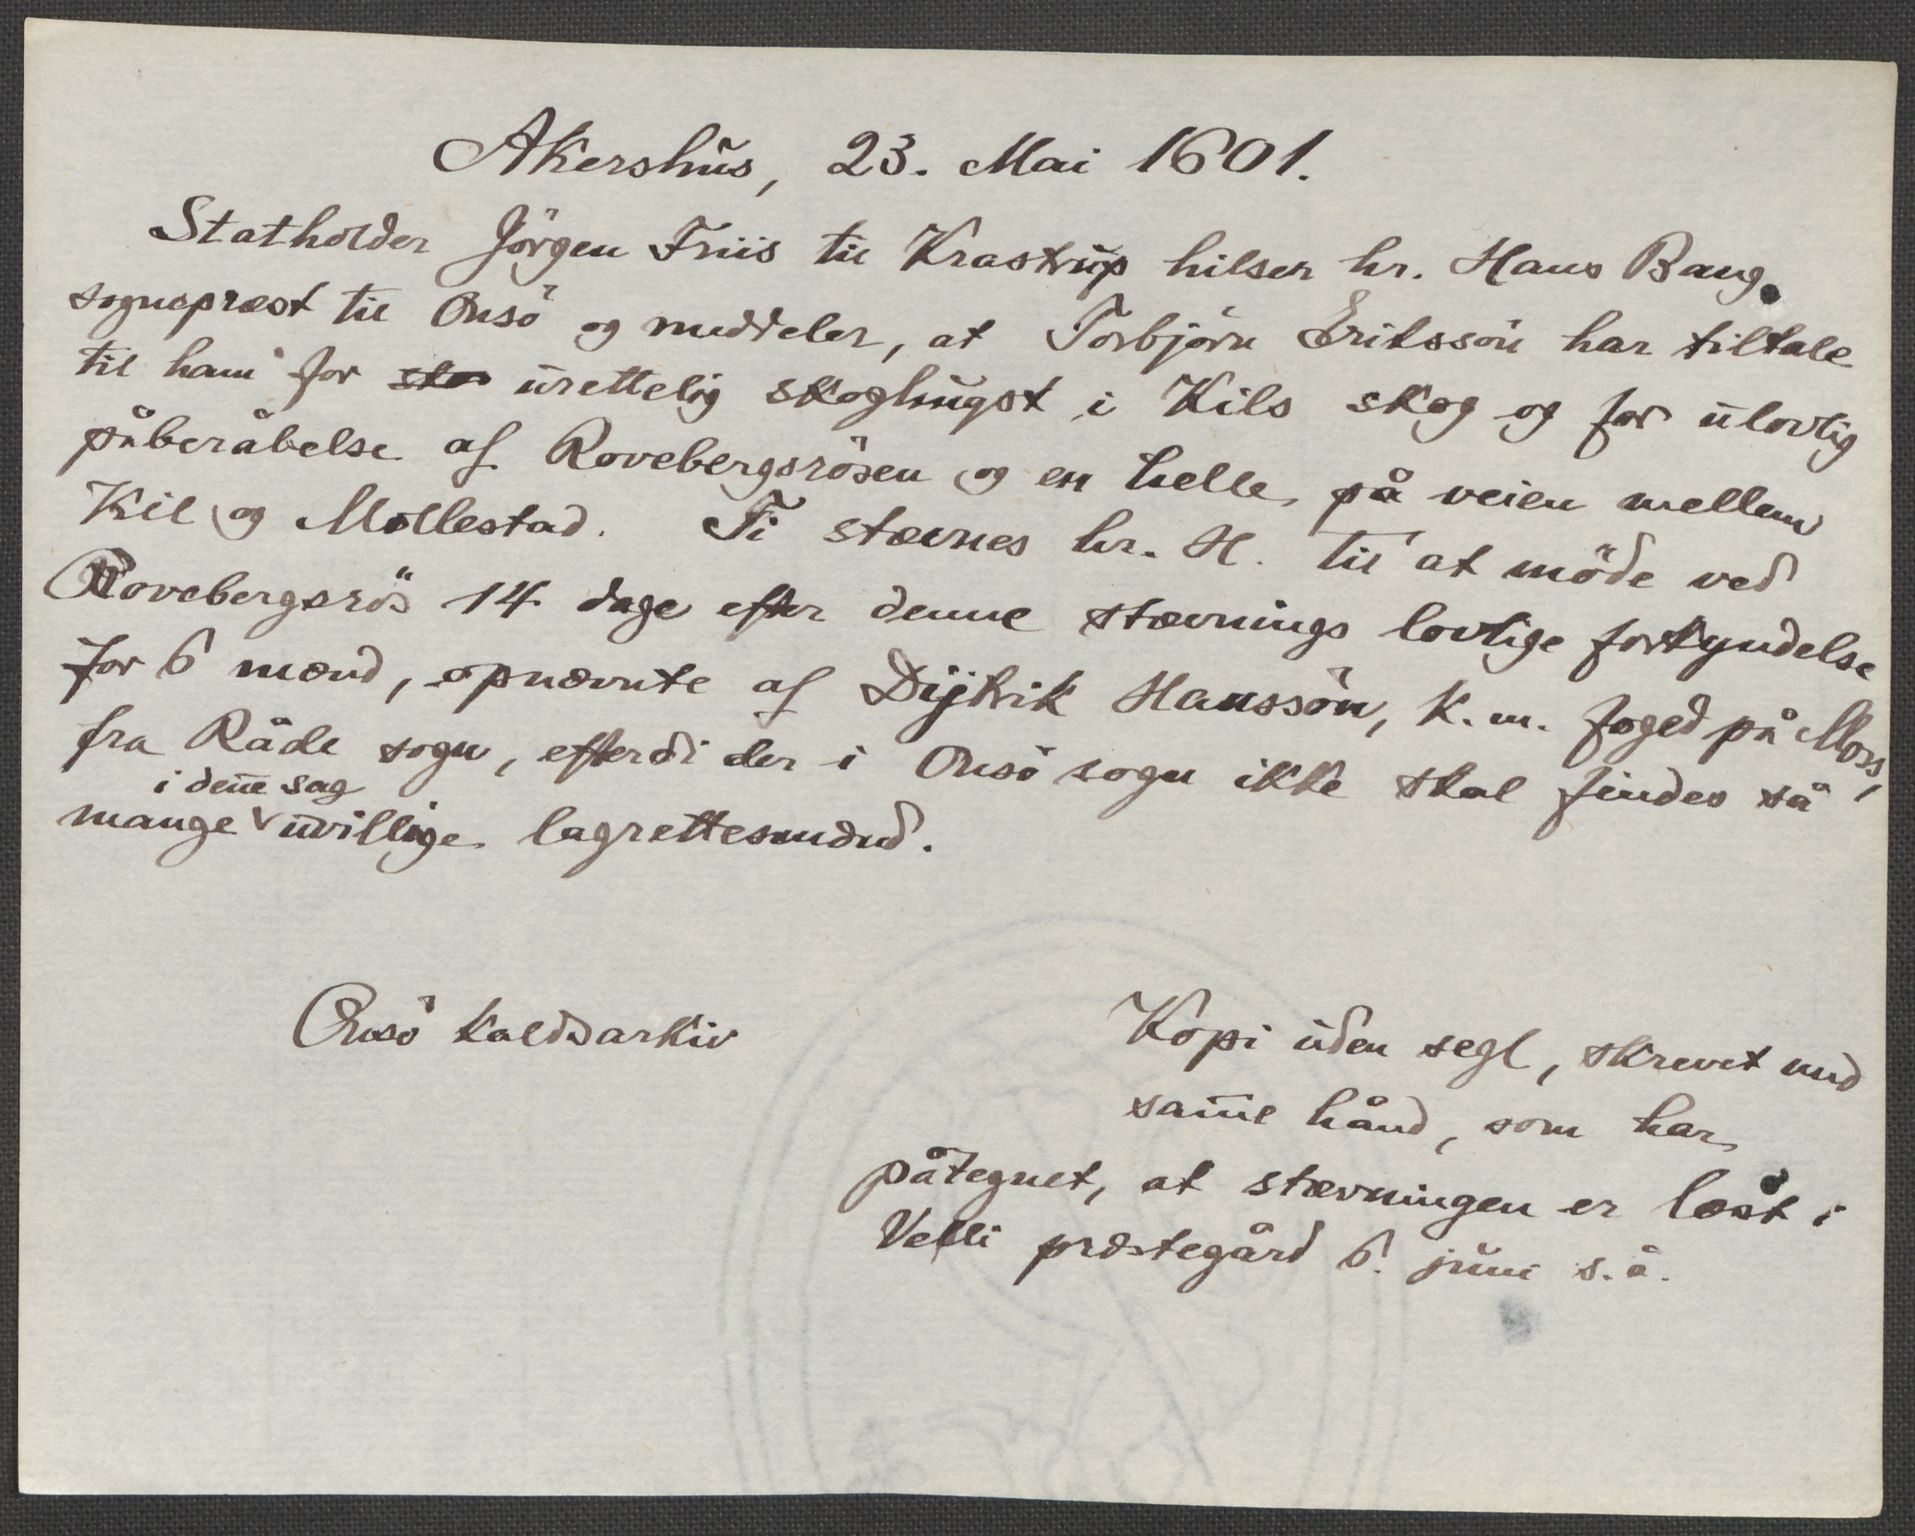 Akershus, 23. Mai 1601.
Statholder Jörgen Friis til Krastrup hilser hr. Hans Bang,
sognepræst til Onsö og meddeler, at Torbjörn Erikssön har tiltale
til ham for urettelig skoghugst i Kils skog og for ulovlig
påberåbelse af Rovebergsrösen og en helle på veien mellem
Kil og Mollestad. Ti stævnes hr. H. til at möde ved
Rovebergsrös 14 dage efter denne stævnings lovlige forkyndelse
for 6 mænd, opnævnte af Dijtrik Hanssön, k. m. foged på Moss,
fra Råde sogn, efterdi der i Onsö sogn ikke skal findes så
mange i denne sag uvillige lagrettesmænd.
Onsö kaldsarkiv
Kopi uden segl, skrevet med
samme hånd, som har
påtegnet, at stævningen er læst i
Velli præstegård 6. juni s. å.